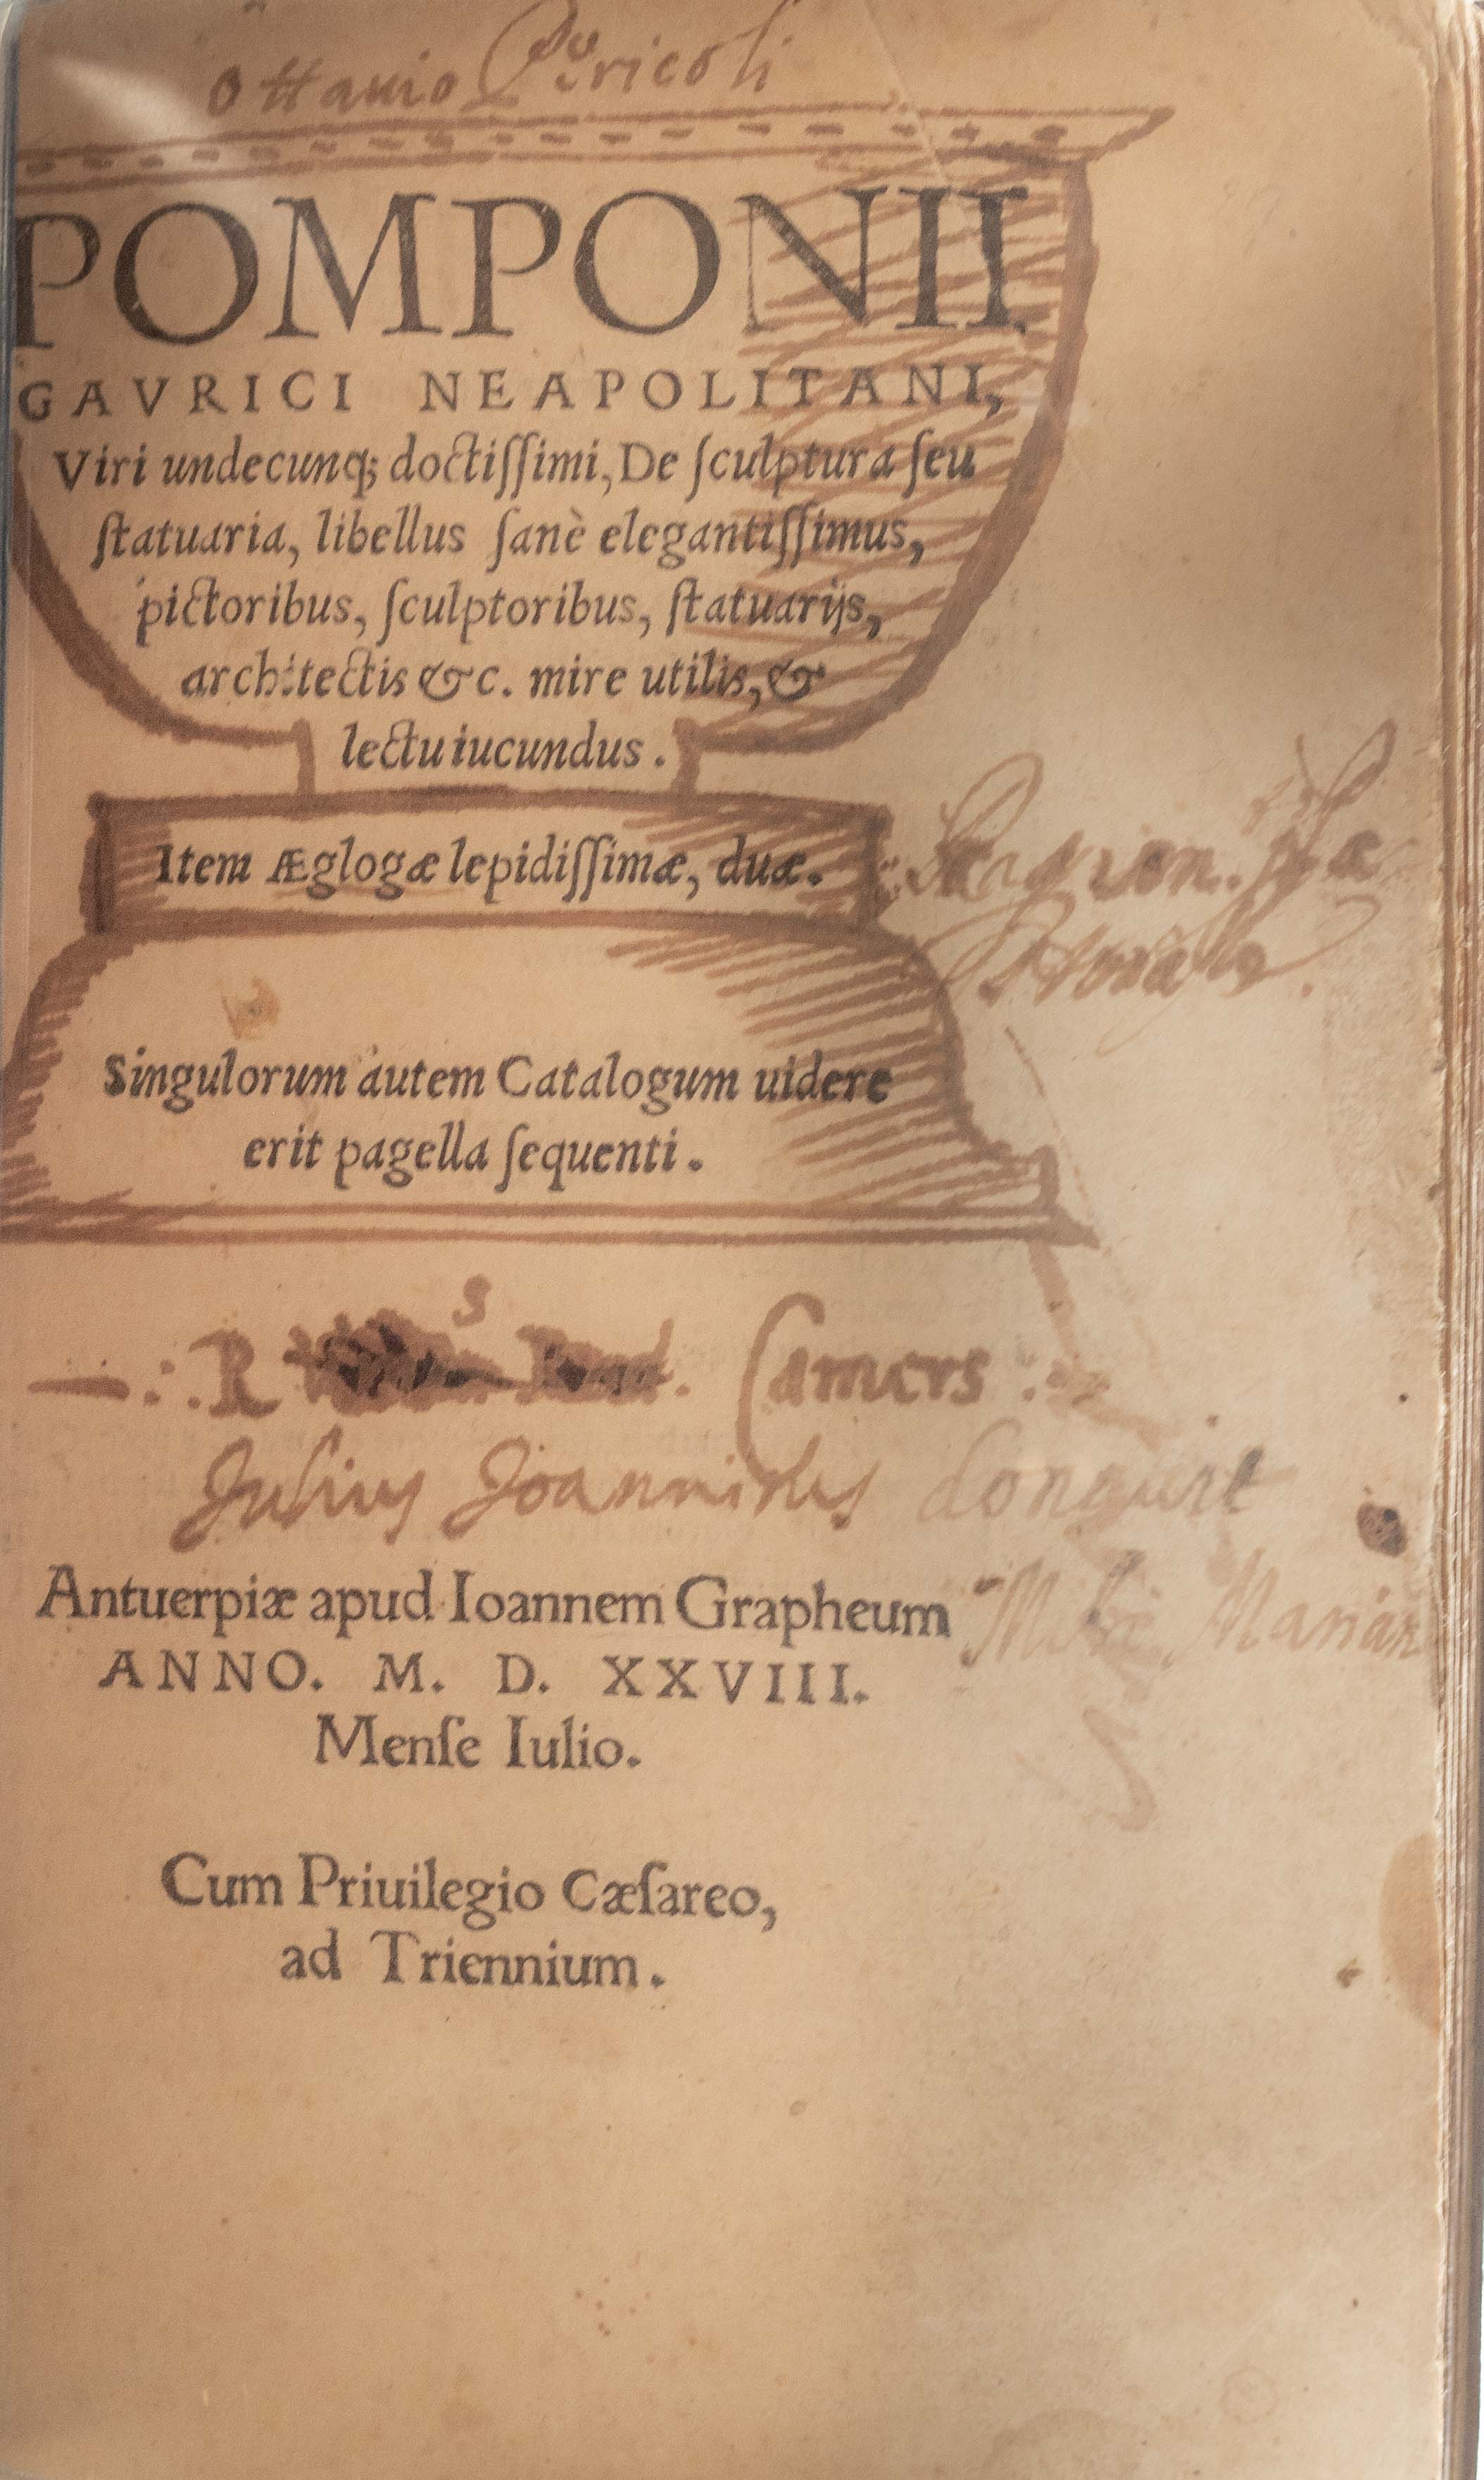 Ottauio
POMPONII
GAVRICI NEAPOLITANI,
Viri undecunq; doctiſſimi, De ſculptura ſeu
ſtatuaria, libellus ſanè elegantiſſimus,
pictoribus, ſculptoribus, ſtatuarijs,
architectis &c. mire utilis, &
lectu iucundus.
Item Æglogæ lepidiſſimæ, duæ.
Singulorum autem Catalogum uidere
erit pagella ſequenti.
R Camers
Julius Joannides
Antuerpiæ apud Ioannem Grapheum
ANNO. M. D. XXVIII.
Menſe Iulio.
Cum Priuilegio Cæſareo,
ad Triennium.